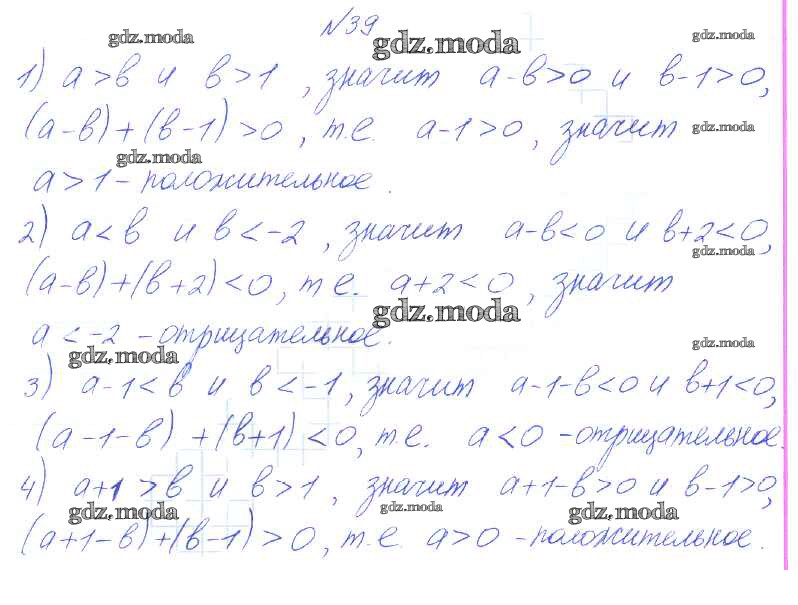 №39
gdz.moda gdz.moda gdz.moda
1) a>b и b>1, значит a-b>0 и b-1>0,
(a-b)+(b-1)>0, т.е. a-1>0, значит gdz.moda
gdz.moda
a>1 - положительное.
2) a<b и b<-2, значит a-b<0 и b+2<0,
gdz.moda
(a-b)+(b+2)<0, т.е. a+2<0, значит
gdz.moda
a<-2 - отрицательное.
gdz.moda gdz.moda
3) a-1<b и b<-1, значит a-1-b<0 и b+1<0,
(a-1-b)+(b+1)<0, т.е. a<0 - отрицательное.
4) a+1>b и b>1, значит a+1-b>0 и b-1>0,
gdz.moda gdz.moda gdz.moda
(a+1-b)+(b-1)>0, т.е. a>0 - положительное.